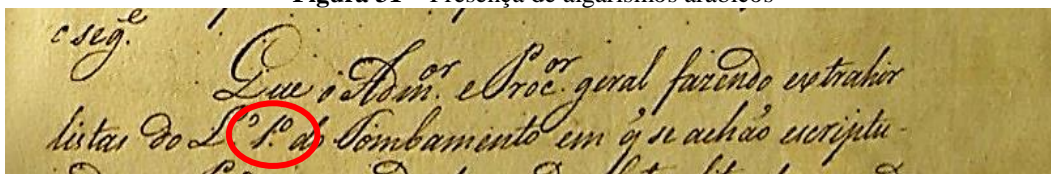 Figura 31 – Presença de algarismos arábicos
e seg.e
Que o Adm.or e Proc.or geral fazendo extrahir
listas do L.o 1.o do Tombamento em q̃ se achão escriptu-